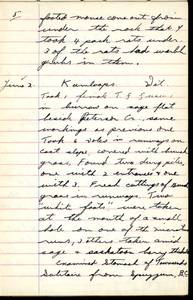 5
footed mouse come out from
under the rock that I
took 4 pack rats under
3 of the rats had
in them.
June 2. Kamloops Dit.
Took 1 female T.
in burrow on sage flat
head Peterson Cr. same
workings as previous one
Took 6 voles in runways on
east slope covered with bunch
grass. Found two dung piles
one with 2 entrances & one
with 3. Fresh cuttings of
grass in runways. Two
white foots were taken
at the mouth of a small
hole on one of the
runs, 3 others taken amid
sage &
Examined Stomach of Townsends
Solitaire from Spuzzum, B.C.